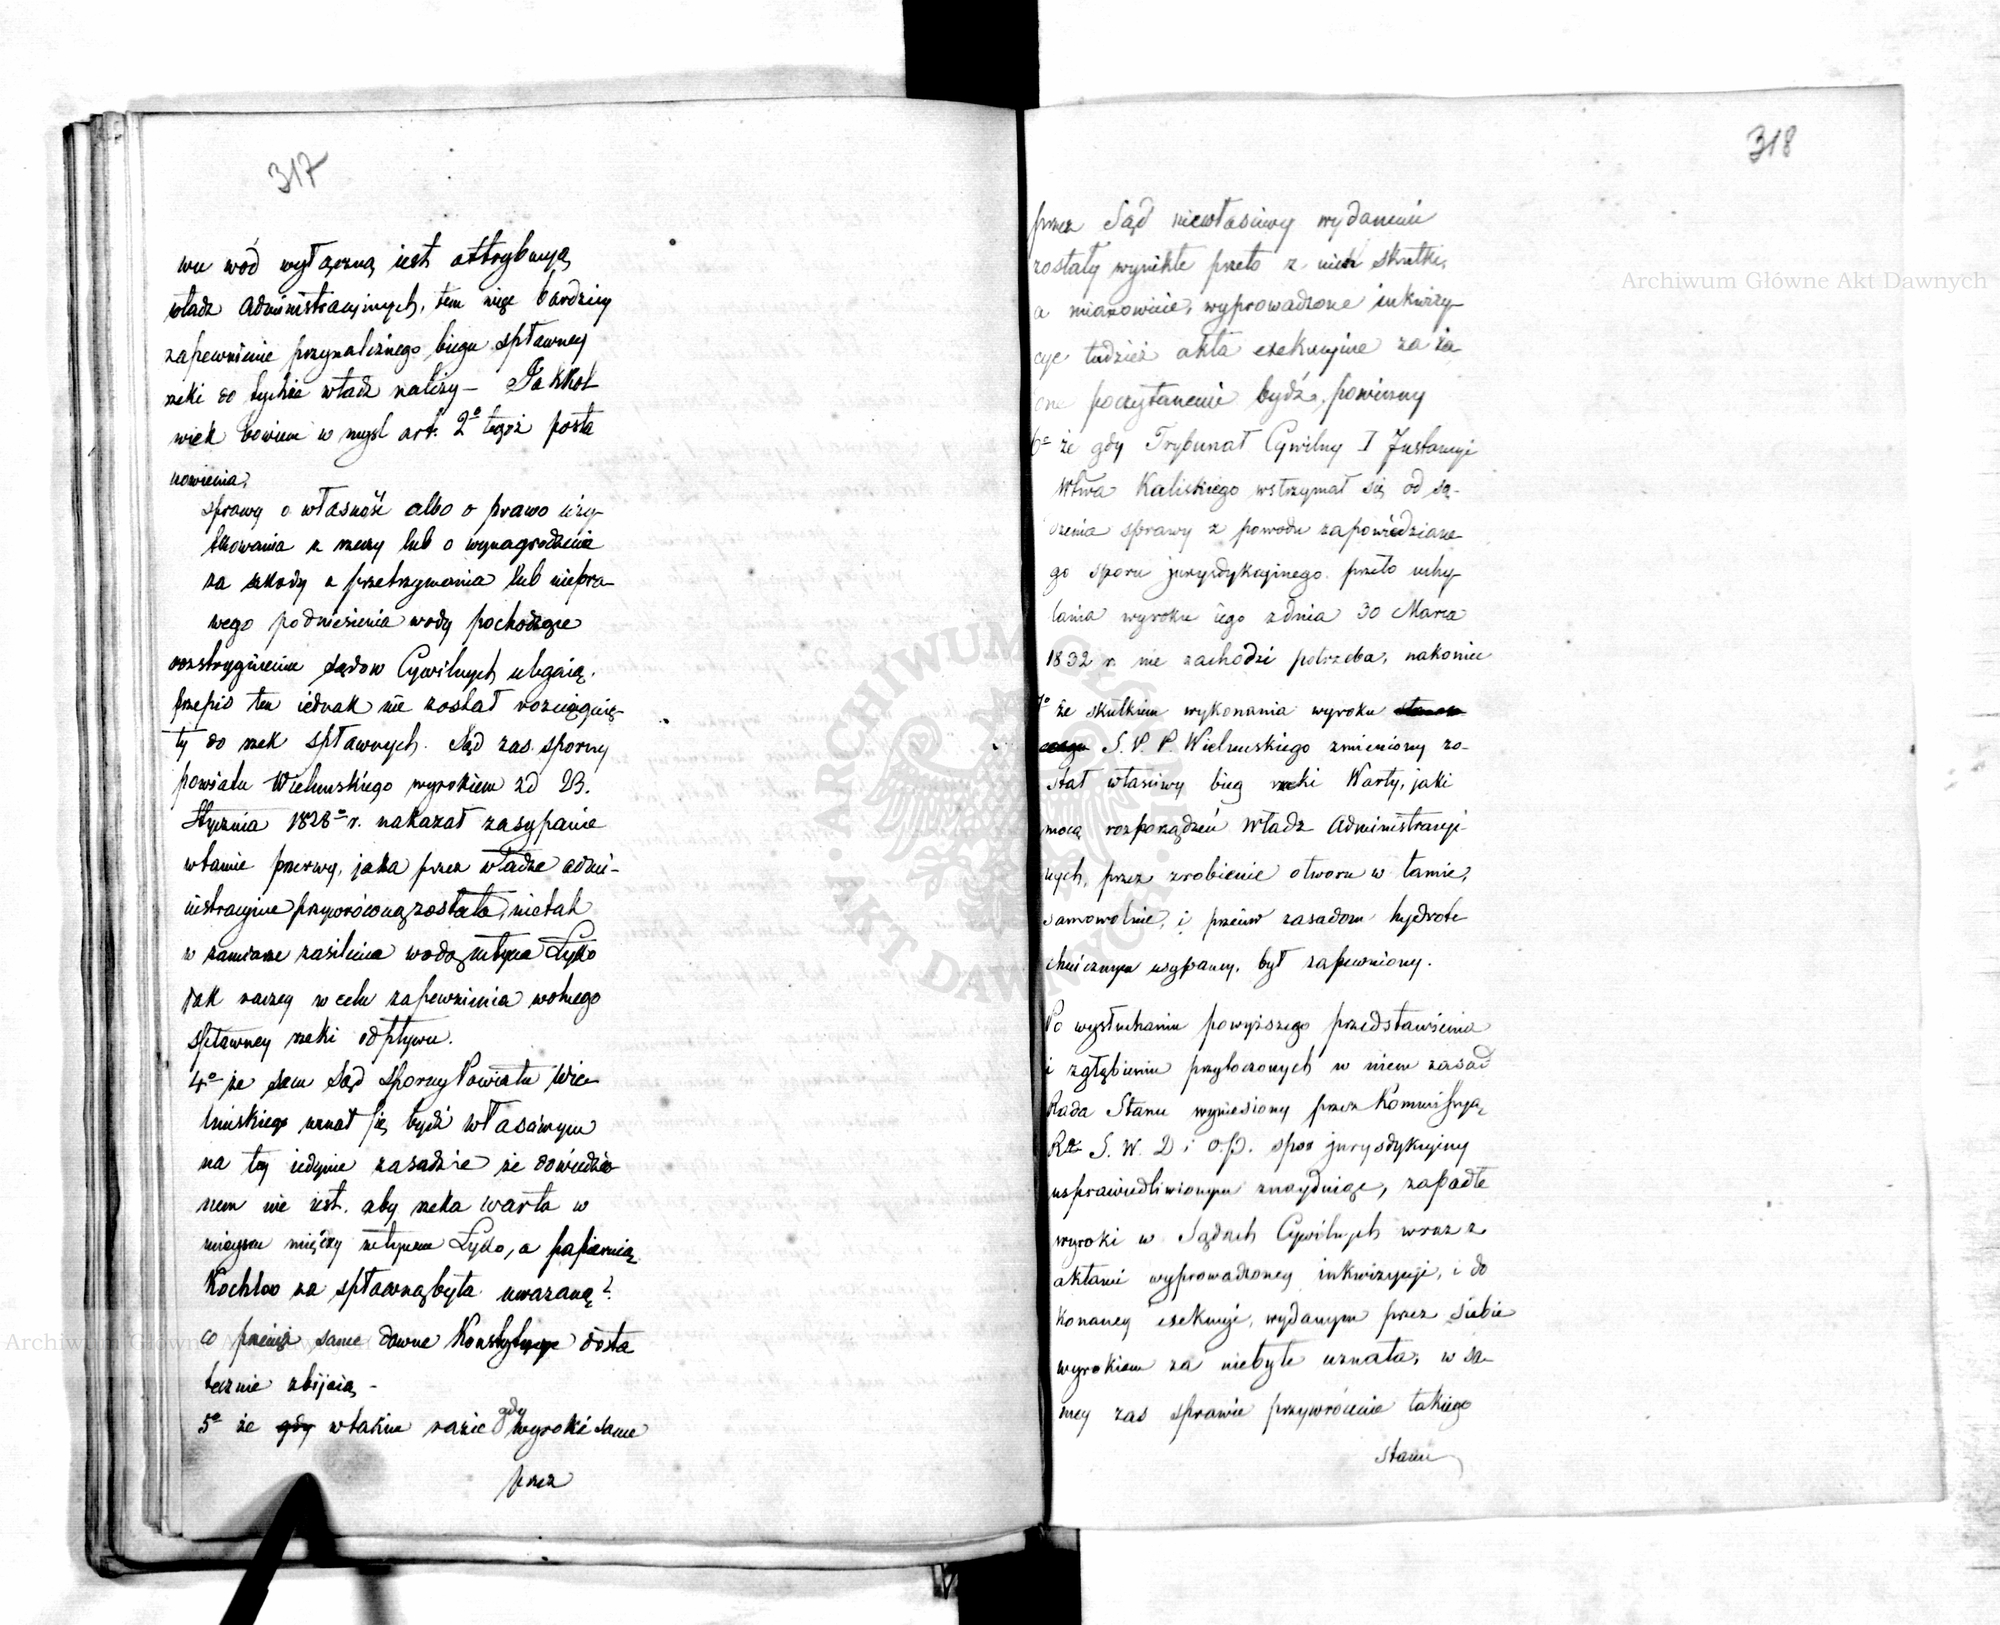 317
wu wód wyłączną iest attrybucyą
władz administracyjnych, tem więc bardziey
zapewnienie przynależnego biegu spławney
rzeki do tychże władz należy – Jakkol
wiek bowiem w myśl art. 2º tegoż posta
nowienia,
sprawy o własność albo o prawo uży-
tkowania z rzeczy lub o wynagrodzenie
za szkody z przetrzymania lub niepra-
wego podniesienia wody pochodzące
rozstrzygnieniu sądow Cywilnych ulegaią.
przepis ten iednak nie został rozciągnię-
ty do rzek spławnych. Sąd zas sporny
powiatu Wieluńskiego wyrokiem z d 23.
Stycznia 1828º r. nakazał zasypanie
w tamie przerwy, jaka przez władze admi-
nistracyjne przywróconą została, nietak
w zamiarze zasilenia wodą młyna Lysko
jak raczey w celu zapewnienia wolnego
spławney rzeki odpływu.
4º że sam Sąd Sporny Powiatu Wie-
luńskiego uznał się bydź własciwym
na tey iedynie zasadzie że dowiedzio-
nem nie iest, aby rzeka Warta w
mieyscu między młynem Lysko, a papiernią
Kochlew za spławną była uważaną?
co przecież same dawne Konstytucye dosta
tecznie zbijaią –
5º że gdy w takim razie gdy wyroki same
przez
318
przez Sąd niewłasciwy wydanemi
zostały wynikłe przeto z nich skutki,
a mianowicie, wyprowadzone inkwizy-
cye tudzież akta exekucyine za ża
dne poczytanemi bydź powinny
6º że gdy Trybunał Cywilny I Instancyi
Wtwa Kaliskiego wstrzymał się od są-
dzenia sprawy z powodu zapowiedziane-
go sporu jurysdykcyjnego. przeto uchy-
lania wyroku iego z dnia 30 Marca
1832 r. nie zachodzi potrzeba, nakoniec
7º że skutkiem wykonania wyroku
S. P. P. Wieluńskiego zmieniony zo-
stał własciwy bieg rzeki Warty, jaki
mocą rozporządzeń Władz Administracyi-
nych, przez zrobienie otworu w tamie,
samowolnie, i przeciw zasadom hydrote
chnicznym usypaney, był zapewniony.
Po wysłuchaniu powyższego przedstawienia
i zgłębieniu przytoczonych w niem zasad
Rada Stanu wyniesiony przez Kommissyą
Rz S. W. D i O. P. spór jurysdykcyjny
usprawiedliwionym znayduiąc, zapadłe
wyroki w Sądach Cywilnych wraz z
aktami wyprowadzoney inkwizycyi, i do
konaney exekucyi, wydanym przez siebie
wyrokiem za niebyłe uznała, w sa-
mey zas sprawie przywrócenie takiego
stanu
Archiwum Główne Akt Dawnych
ARCHIWUM GŁÓWNE AKT DAWNYCH